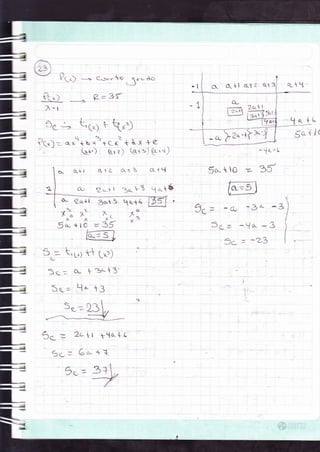 23
P(x) → cuarto grado
P(x) / x-1 → R = 35
Sc → t1(x) + t(x²)
P(x) = ax⁴ + bx³ + cx² + dx + e
(a+1) (a+2) (a+3) (a+4)
a a+1 a+2 a+3 a+4
1 a 2a+1 3a+3 4a+6
a 2a+1 3a+3 4a+6 35
x³ x² x x⁰
5a + 10 = 35
a = 5
Sc = a + 3a+3
Sc = 4a + 3
Sc = 23
Sc = 2a+1 + 4a+6
Sc = 6a + 7
Sc = 37
-1 a a+1 a+2 a+3 a+4
-1 a
2a+1
4a+6
5a+10
-4a-6
5a+10 = 35
a = 5
Sc = -a -3a -3
Sc = -4a -3
Sc = -23